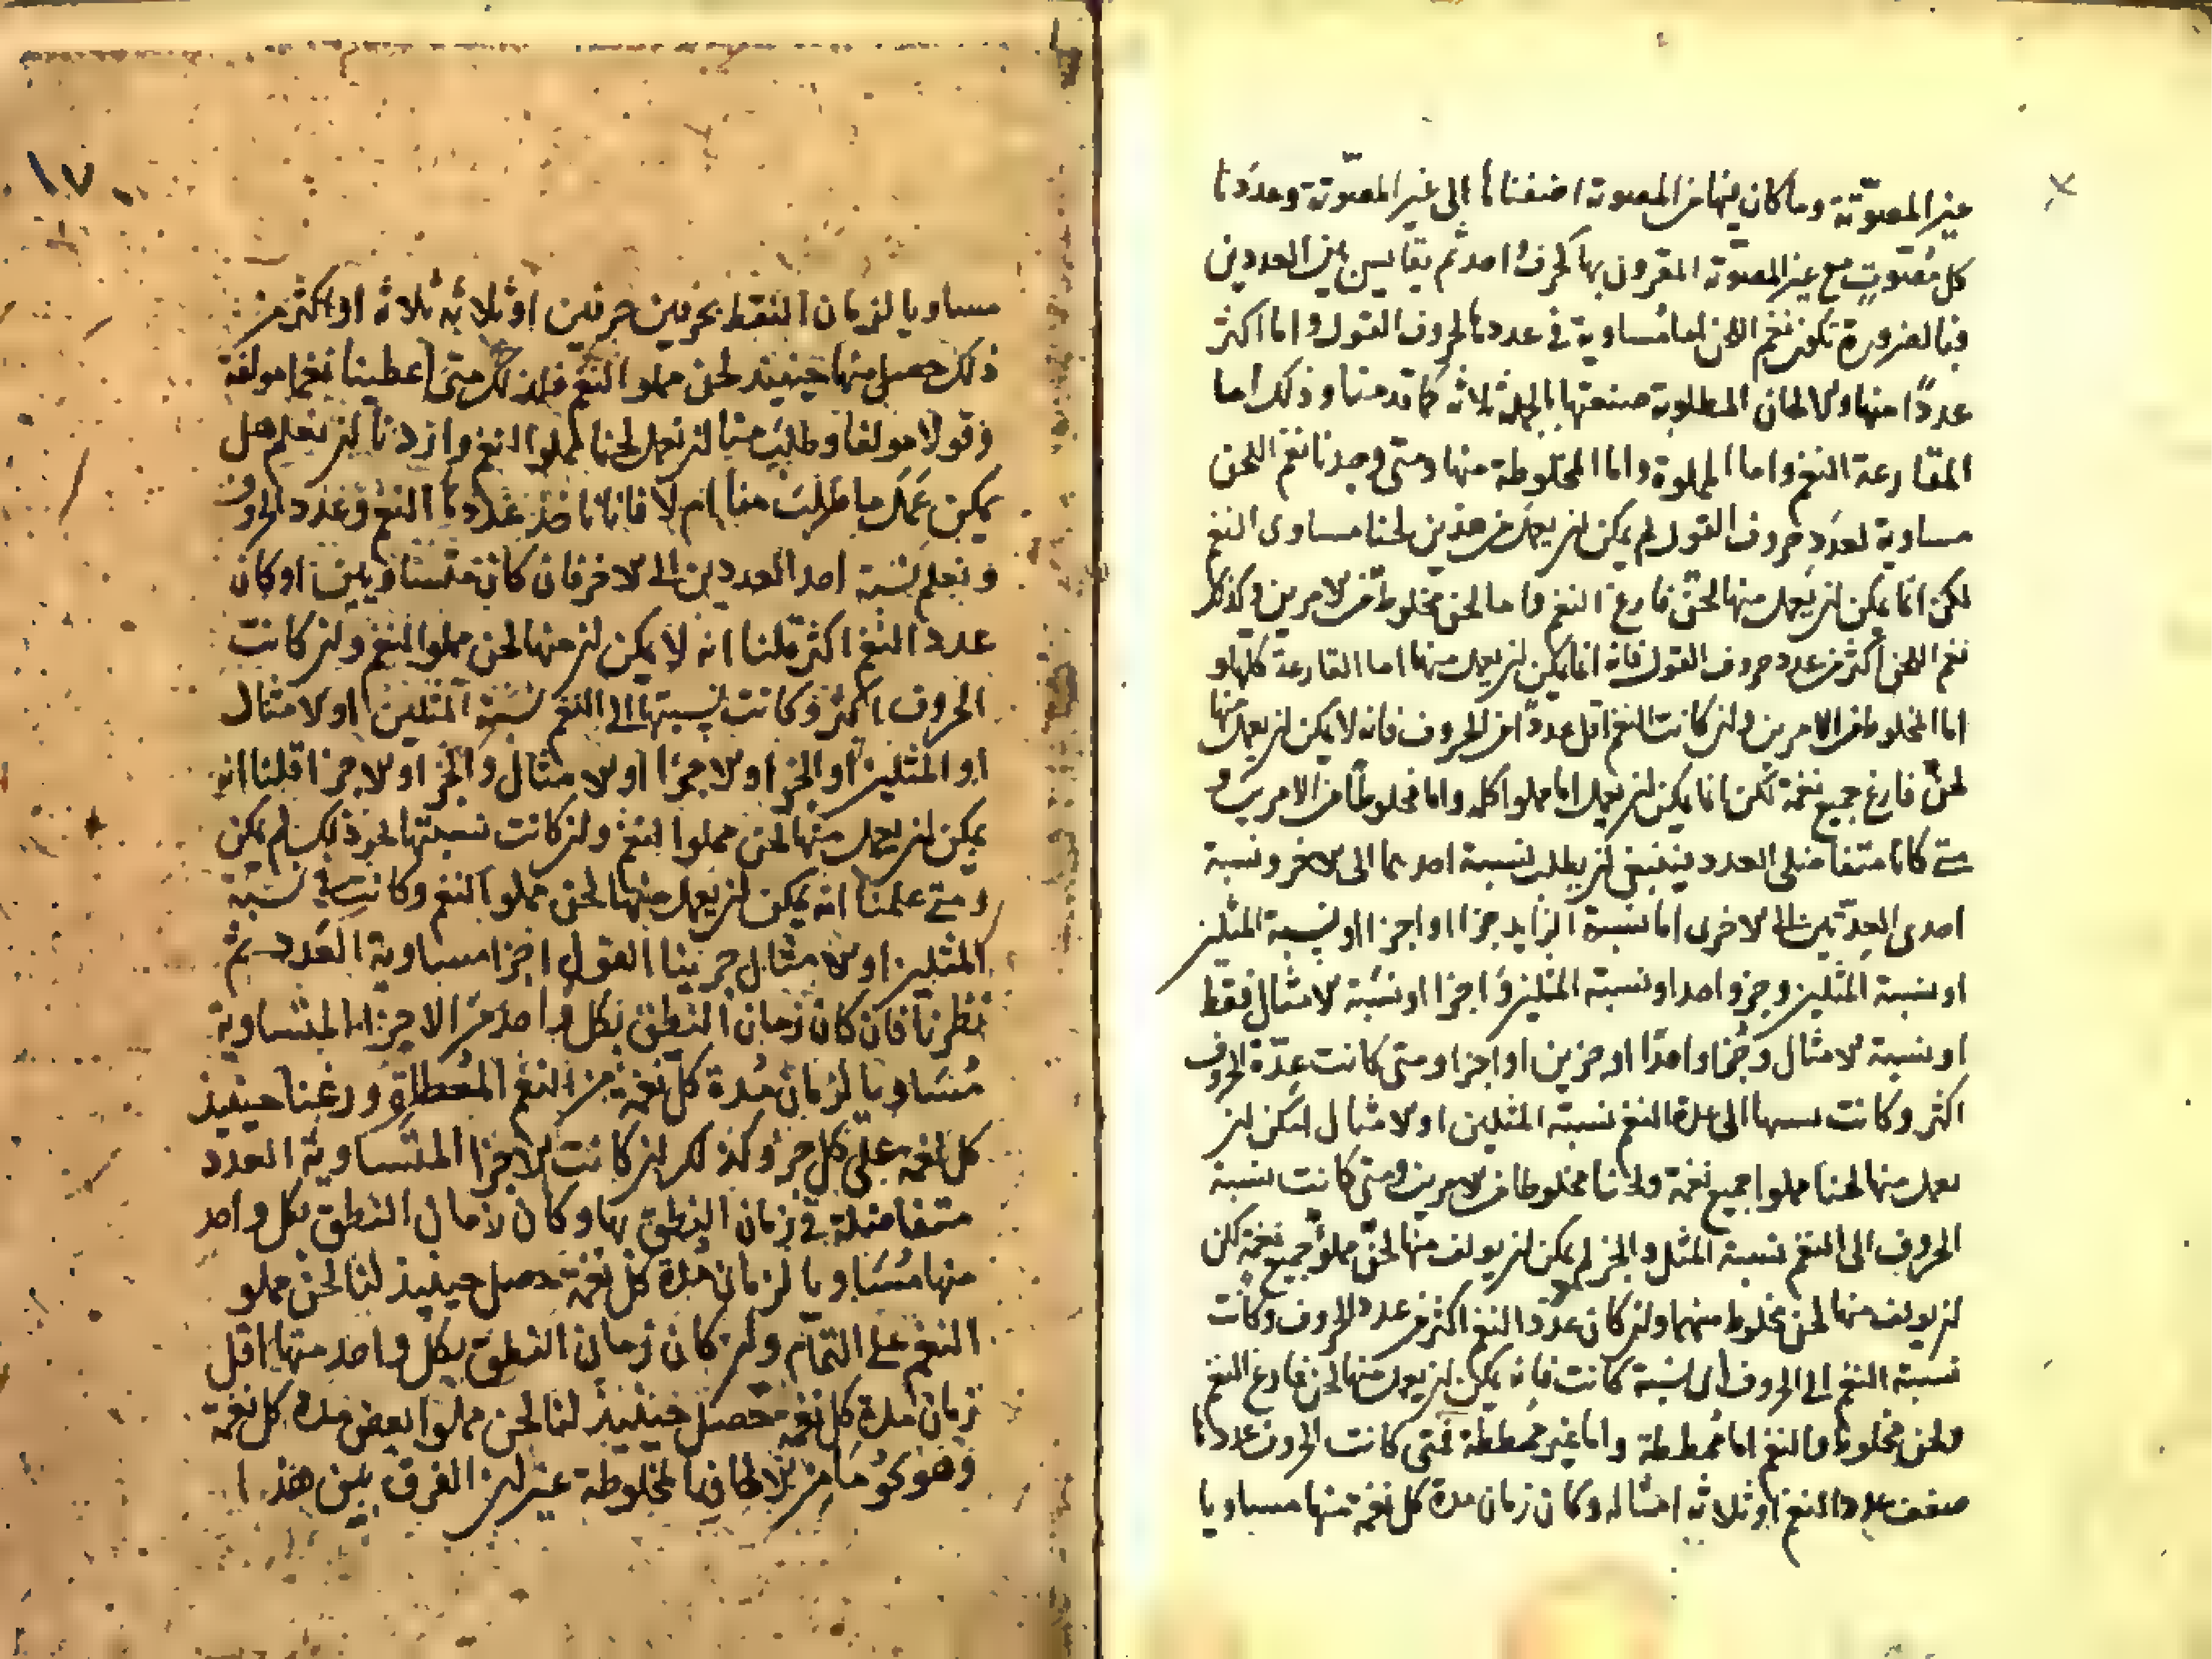 غير المصوتة وما كان منها من المصوتة اضفناها الى غير المصوتة وعددنا
كل مصوت مع غير المصوتة المقرون بها كحرف احد ثم يقايس بين العددين
فبالضرورة تكون نغم اللحن اما مساوية في عددها لحروف القول واما اكثر
عددا منها والالحان المطلوبة صنعتها بالجملة ثلاثة كما قدمنا وذلك اما
الفارعة النغم واما المملوة واما المخلوطة منها ومتى وجدنا نغم اللحن
مساوية لعدد حروف القول لم يمكن ان يعمل من هذين لحنا مساوى النغم
لكن انما يمكن ان يعمل منها لحن فارغ النغم واما لحن مخلوط من الامرين وكذلك
نغم اللحن اكثر من عدد حروف القول فانه انما يمكن ان يعمل منها اما الفارعة كلها و
اما المخلوط من الامرين وان كانت النغم اقل عددا من الحروف فانه لا يمكن ان يعمل منها
لحن فارغ جميع نغمه لكن انما يمكن ان يعمل اما مملوا كله واما مخلوطا من الامرين و
متى كانا متفاضلى العدد فينبغى ان يطلب نسبة احدهما الى الاخر ونسبة
احدى العدتين الى الاخرى اما نسبة الزايد جزا او اجزا او نسبة المثلين
او نسبة المثلين وجزو احد او نسبة المثلين واجزا او نسبة الامثال فقط
او نسبة الامثال وجزا واحدا او جزين او اجزا ومتى كانت عدة الحروف
اكثر وكانت نسبتها الى عدة النغم نسبة المثلين او الامثال امكن ان
يعمل منها لحنا مملوا جميع نغمه ولحنا مخلوطا من الامرين ومتى كانت نسبة
الحروف الى النغم نسبة المثل والجز لم يمكن ان يولف منها لحن مملو جميع نغمه لكن
ان يولف منها لحن مخلوط منهما وان كان عدد النغم اكثر من عدد الحروف وكانت
نسبة النغم الى الحروف اى نسبة كانت فانه يمكن ان يعمل منها لحن فارغ النغم
ولحن مخلوط والنغم اما ممططة واما غير ممططة فمتى كانت الحروف عددها
ضعف عدد النغم او ثلاثة امثاله وكان زمان مدة كل نغمة منها مساويا
١٧
مساويا لزمان النقط بحرفين حرفين او ثلاثة ثلاثة او اكثر من
ذلك حصل منها حينيذ لحن مملو النغم فلذلك متى اعطينا نغما مولفة
وقولا مولفا وطلب منا ان نعمل لحنا مملو النغم واردنا ان نعلم هل
يمكن عمل ما طلب منا ام لا فانا ناخذ عدد النغم وعدد الحروف
ونعلم نسبة احد العددين الى الاخر فان كانت متساويين او كان
عدد النغم اكثر قلنا انه لا يمكن ان منها لحن مملو النغم وان كانت
الحروف اكثر وكانت نسبتها الى النغم نسبة المثلين او الامثال
او المثلين او الجز او الاجزا او الامثال والجز او الاجزا قلنا انه
يمكن ان يعمل منها لحن مملو النغم وان كانت نسبتها نحو ذلك لم يمكن
ومتى علمنا انه يمكن ان يعمل منها لحن مملو النغم وكانت نسبة
المثلين او الامثال جزينا القول اجزا مساوية العدد ثم
نظرنا فان كان زمان النطق بكل واحد من الاجزا المتساوية
مساويا لزمان مدة كل نغمة من النغم المعطاة وزعنا حينيذ
كل نغمة على كل جز وكذلك ان كانت الاجزا المتساوية العدد
متفاضلة في زمان النطق بها وكان زمان النطق بكل واحد
منها مساويا لزمان مدة كل نغمة حصل حينيذ لنا لحن مملو
النغم على التمام وان كان زمان النطق بكل واحد منها اقل
زمان مدة كل نغمة حصل حينيذ لنا لحن مملوا بعض مدة كل نغمة
وهو نحو ما من الالحان المخلوطة غير ان الفرق بين هذا